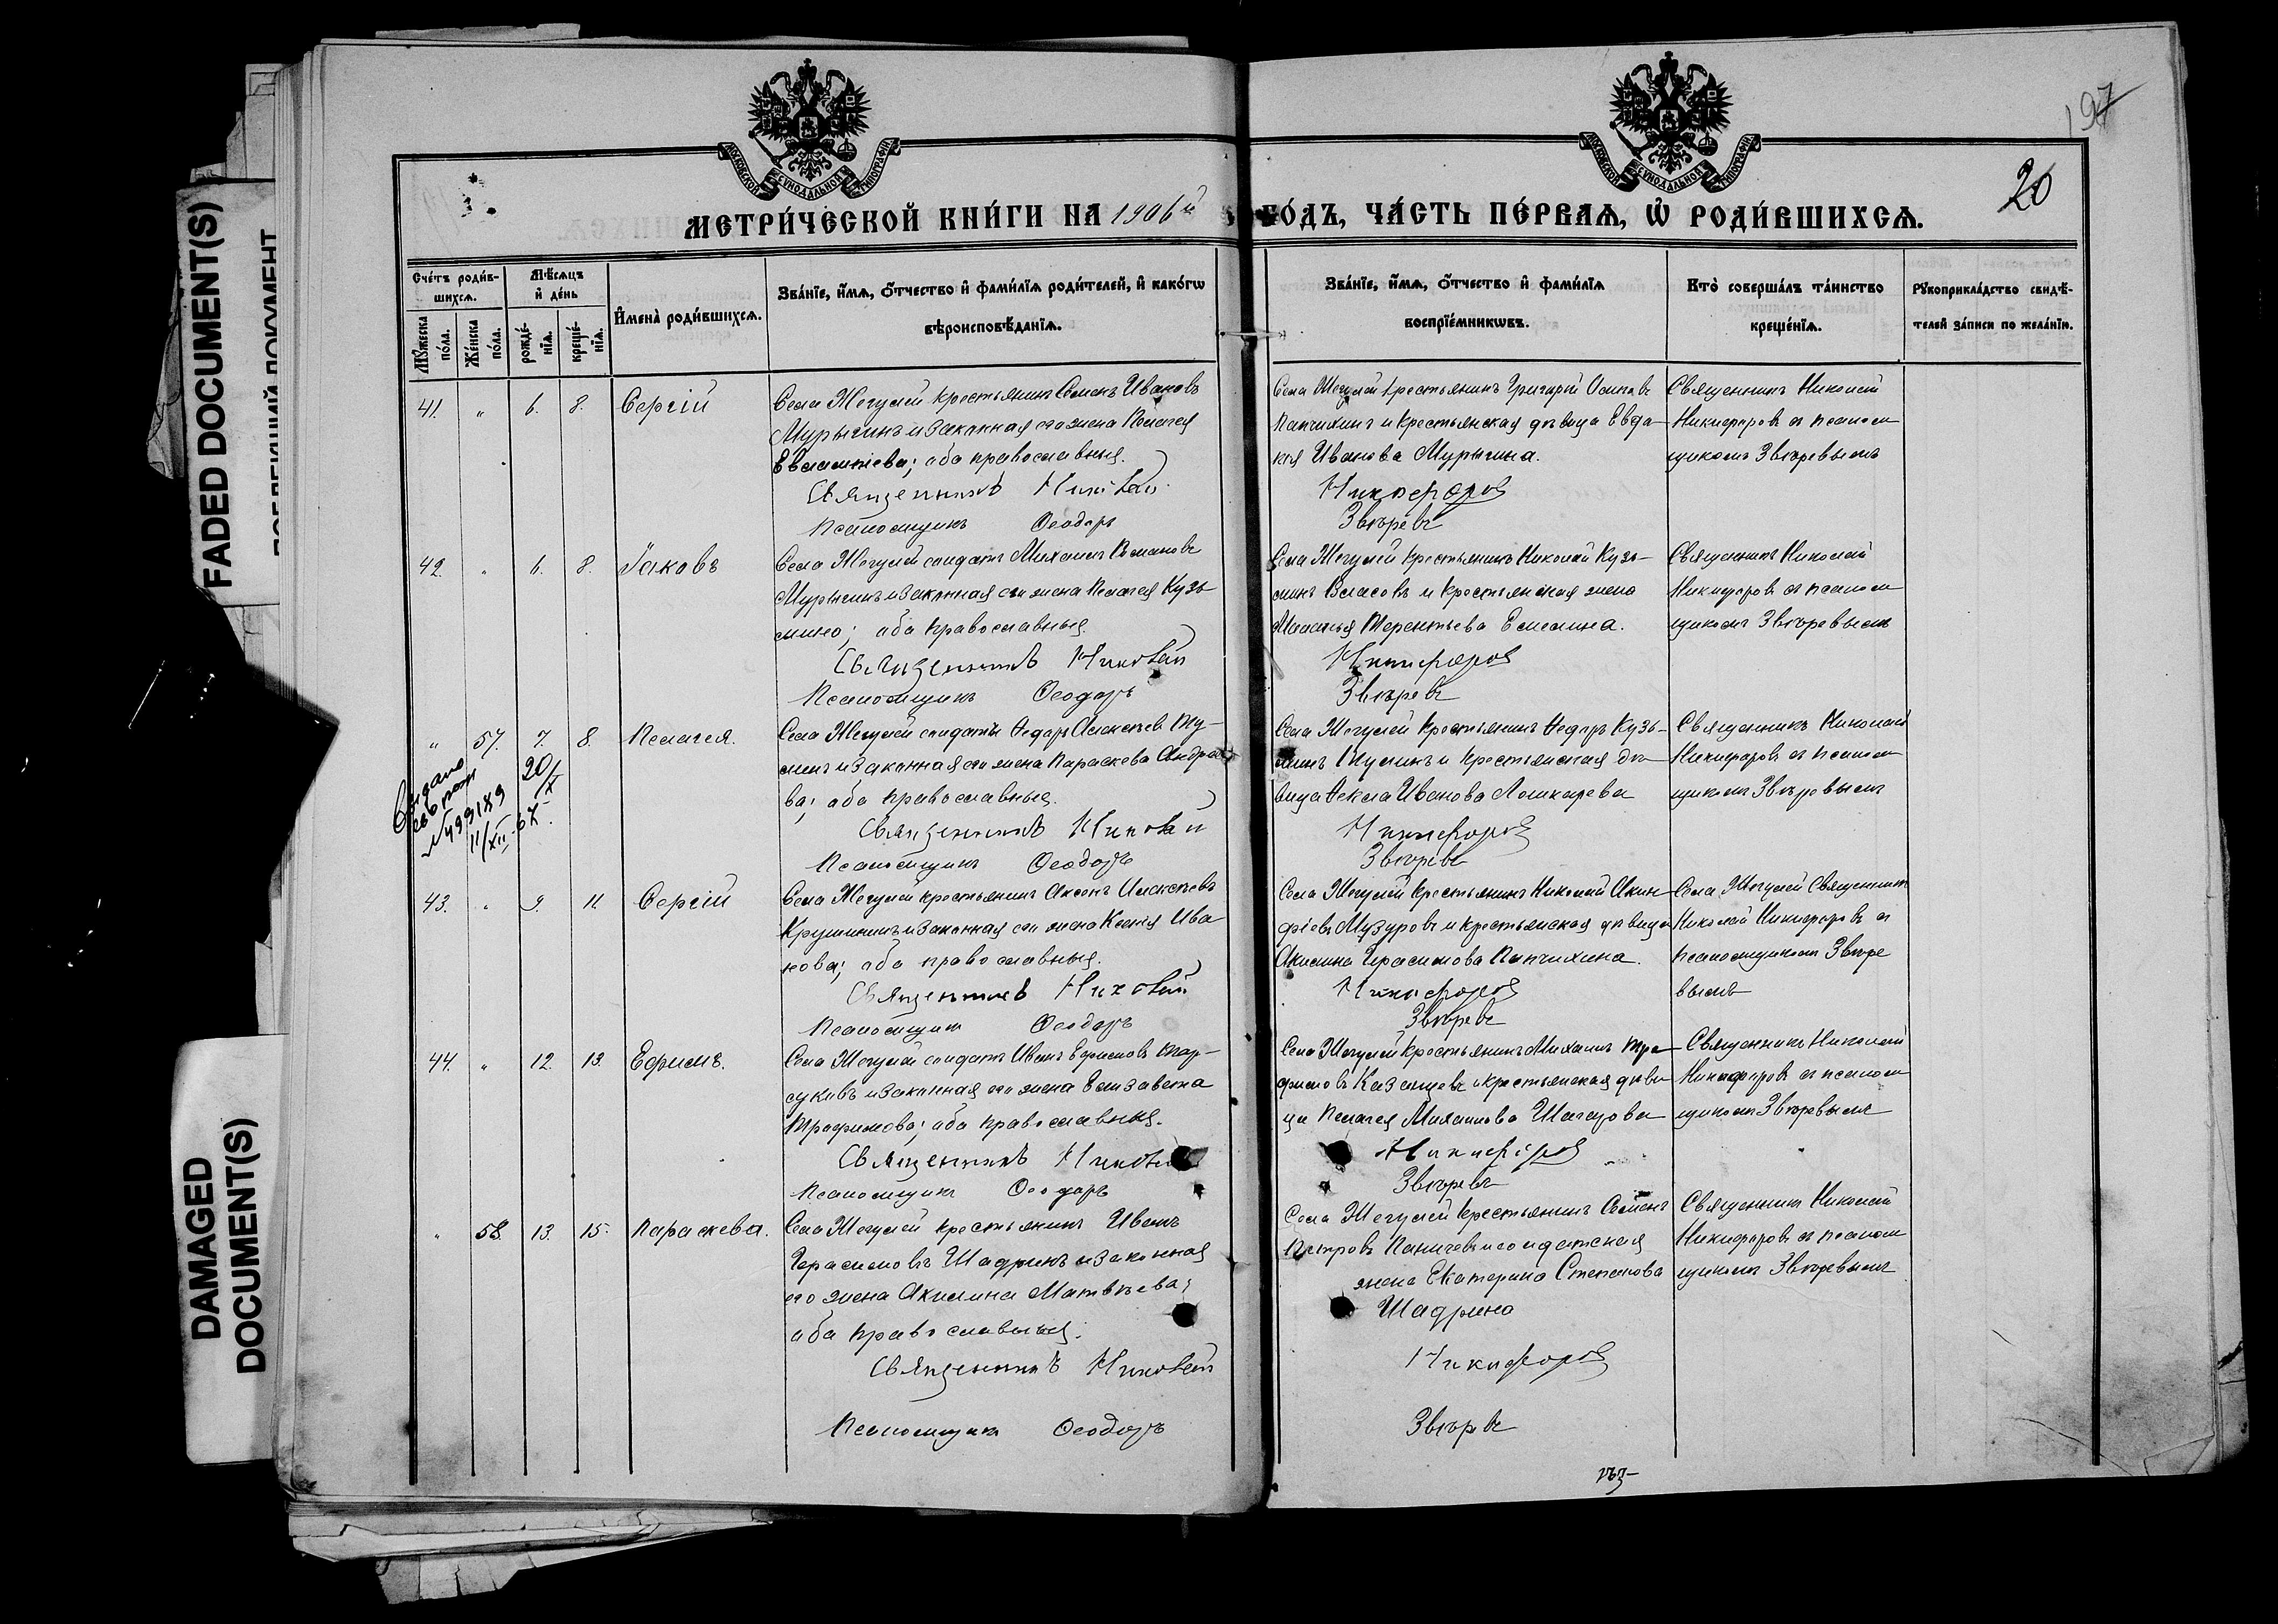 FADED DOCUMENT(S)
DAMAGED
DOCUMENT(S)
197
20
МОСКОВСКОЙ СѴНОДАЛЬНОЙ ТИПОГРАФІИ
МОСКОВСКОЙ СѴНОДАЛЬНОЙ ТИПОГРАФІИ
МЕТРИ́ЧЕСКОЙ КНИ́ГИ НА 1906й ГО́ДЪ, ЧА́СТЬ ПЕ́РВАѦ, Ѡ҆ РОДИ́ВШИХСѦ.
Сче́тъ роди́в-
шихсѧ.
Мꙋ́жеска по́ла.
Же́нска по́ла.
Мѣ́сѧцъ
и҆ де́нь
рожде́нїѧ.
креще́нїѧ.
И҆мена̀ роди́вшихсѧ.
Зва́нїе, и҆́мѧ, ѻ҆́тчество и҆ фами́лїѧ роди́телей, и҆ како́гѡ
вѣроисповѣ́данїѧ.
Зва́нїе, и҆́мѧ, ѻ҆́тчество и҆ фами́лїѧ
воспрїе́мникѡвъ.
Кто̀ соверша́лъ та́инство
креще́нїѧ.
Рꙋкоприкла́дство свидѣ́-
телей за́писи по жела́нїю.
41. " 6. 8. Сергій
Села Жегулей крестьянинъ Семенъ Ивановъ
Мурыгинъ и законная его жена Пелагея
Евлампіева; оба православныя.
Священникъ Николай
Псаломщикъ Ѳеодоръ
Села Жегулей крестьянинъ Григорій Осиповъ
Папчихинъ и крестьянская дѣвица Евдо-
кія Иванова Мурыгина.
Никифоровъ
Звѣревъ
Священникъ Николай
Никифоровъ съ псалом
щикомъ Звѣревымъ
42. " 6. 8. Іаковъ
Села Жегулей солдатъ Михаилъ Романовъ
Мурыгинъ и законная его жена Пелагея Кузь-
мина; оба православныя.
Священникъ Николай
Псаломщикъ Ѳеодоръ
Села Жегулей крестьянинъ Николай Кузь-
минъ Власовъ и крестьянская жена
Терентьева Емелина.
Никифоровъ
Звѣревъ
Священникъ Николай
Никифоровъ съ псалом
щикомъ Звѣревымъ
" 57. 7. 8. Пелагея.
Выдано
№ 499189
11/XII-67.
20/X
Села Жегулей солдатъ Ѳедоръ Алексѣевъ
и законная его жена Параскева Андрее
ва; оба православныя.
Священникъ Николай
Псаломщикъ Ѳеодоръ
Села Жегулей крестьянинъ Ѳедоръ Кузь-
минъ и крестьянская дѣ
вица Ѳекла Иванова Лошкарева
Никифоровъ
Звѣревъ
Священникъ Николай
Никифоровъ съ псалом
щикомъ Звѣревымъ
43. " 9. 11. Сергій
Села Жегулей крестьянинъ Аксенъ Алексѣевъ
Крушининъ и законная его жена Ксенія Ива
нова; оба православныя.
Священникъ Николай
Псаломщикъ Ѳеодоръ
Села Жегулей крестьянинъ Николай Акин
фіевъ Музуровъ и крестьянская дѣвица
Акилина Герасимова Папчихина.
Никифоровъ
Звѣревъ
Села Жегулей Священникъ
Николай Никифоровъ съ
псаломщикомъ Звѣре
вымъ
44. " 12. 13. Ефимъ.
Села Жегулей солдатъ Иванъ Ефимовъ Бар-
суковъ и законная его жена Елизавета
Трофимова; оба православныя.
Священникъ Николай
Псаломщикъ Ѳеодоръ
Села Жегулей крестьянинъ Михаилъ Тро-
фимовъ Казанцевъ и крестьянская дѣви
ца Пелагея Михаилова Шагарова
Никифоровъ
Звѣревъ
Священникъ Николай
Никифоровъ съ псалом
щикомъ Звѣревымъ
" 58. 13. 15. Параскева.
Села Жегулей крестьянинъ Иванъ
Герасимовъ Шадринъ и законная
его жена Акилина Матвѣева;
оба православныя.
Священникъ Николай
Псаломщикъ Ѳеодоръ
Села Жегулей крестьянинъ Семенъ
Петровъ Паничевъ и солдатская
жена Екатерина Степанова
Шадрина
Никифоровъ
Звѣревъ
Священникъ Николай
Никифоровъ съ псалом
щикомъ Звѣревымъ